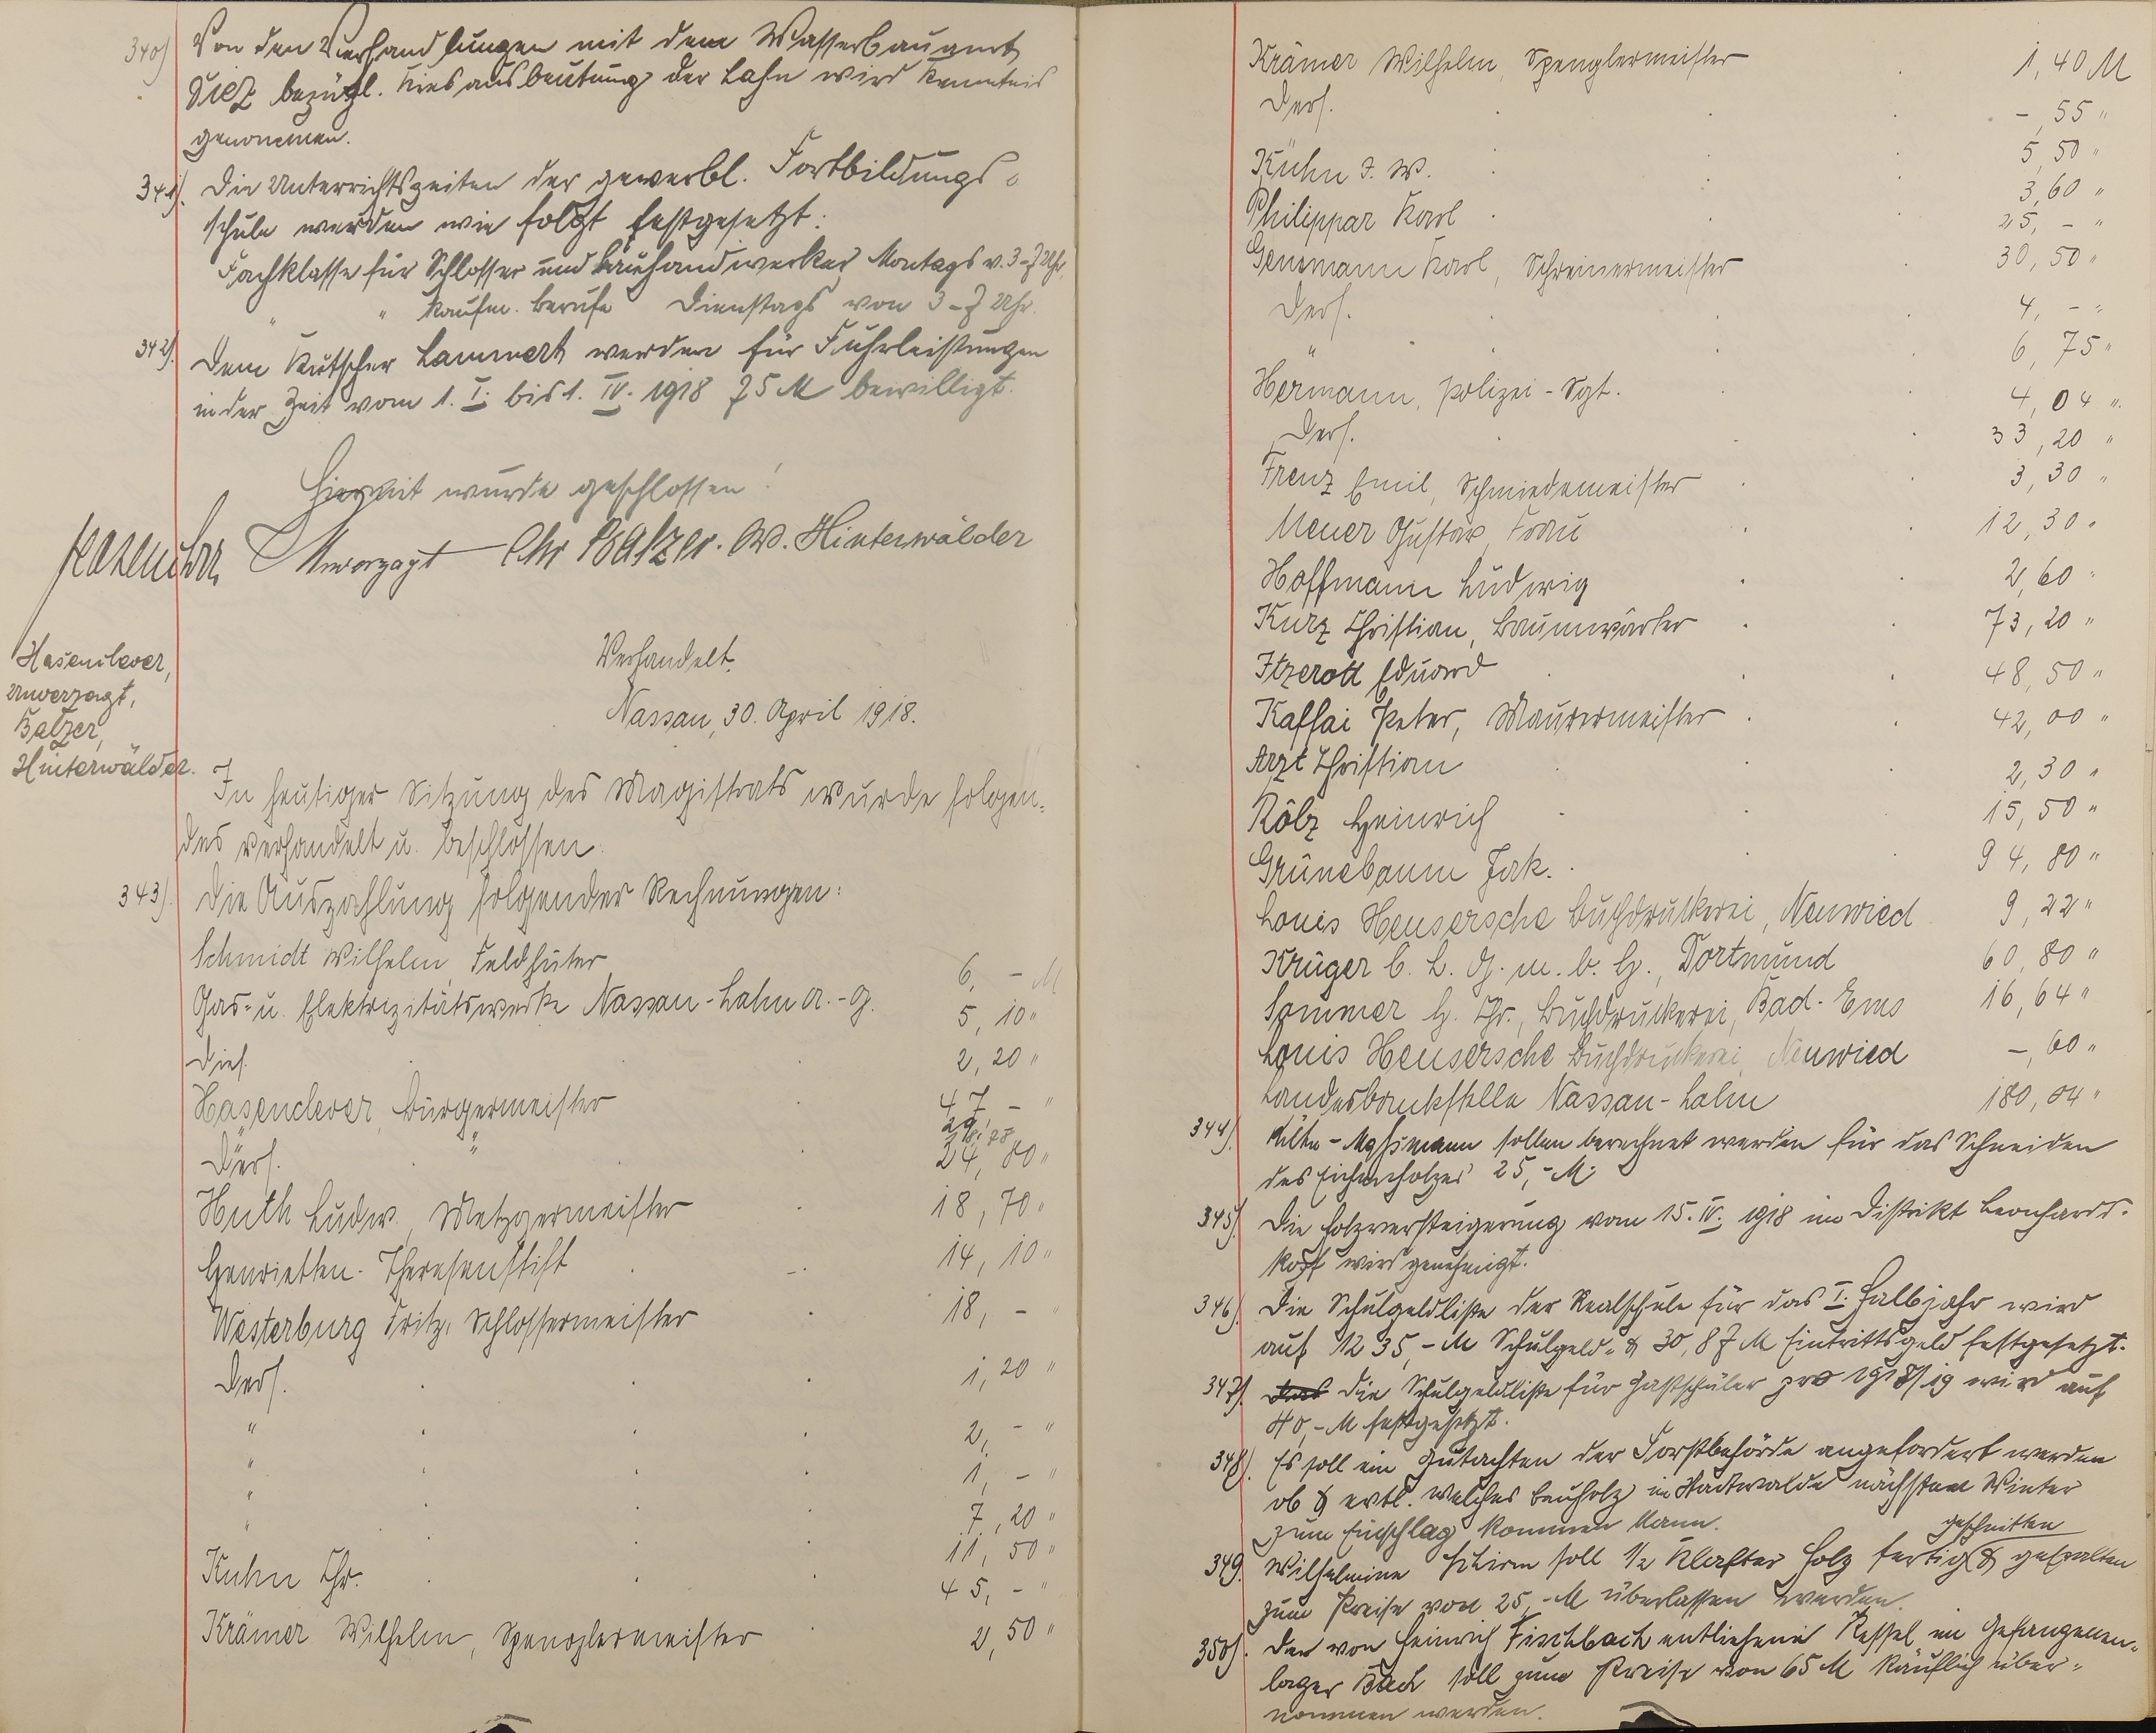 340) Von den Verhandlungen mit dem Wasserbauamt
Diez bezügl. Kiesausbeutung der Lahn wird Kenntnis
genommen.
341). Die Unterrichtszeiten der gewerbl. Fortbildungs-
schule werden wie folgt festgesetzt:
Fachklasse für Schlosser und Bauhandwerker Montags v. 3-7 Uhr,
" " kaufm. Berufe Dienstags von 3-7 Uhr.
342). Dem Kutscher Lammert werden für Fuhrleistungen
in der Zeit vom 1. I. bis 1. IV. 1918 75 M bewilligt.
Hiermit wurde geschlossen!
Hasenclever Unverzagt Chr Balzer. W. Hinterwälder
Hasenclever,
Unverzagt,
Balzer,
Hinterwälder.
Verhandelt.
Nassau, 30. April 1918.
In heutiger Sitzung des Magistrats wurde folgen-
des verhandelt u. beschlossen:
343). Die Auszahlung folgender Rechnungen:
Schmidt Wilhelm, Feldhüter 6, - M
Gas- u. Elektrizitätswerke Nassau-Lahn A.-G. 5, 10 "
Dies. 2, 20 "
Hasenclever, Bürgermeister 47 - "
"
Ders. 24, 80 "
Huth Ludw., Metzgermeister 18, 70 "
Henrietten-Theresenstift 14, 10 "
Westerburg Fritz, Schlossermeister 18, - "
Ders. 1, 20 "
" 2, - "
" 1, - "
" 7, 20 "
" 11, 50 "
Kuhn Chr. 45, - "
Krämer Wilhelm, Spenglermeister 2, 50 "
Krämer Wilhelm, Spenglermeister 1, 40 M
Ders. -, 55 "
Kuhn J. W. 5, 50 "
Philippar Karl 3, 60 "
25, - "
Genemann Karl, Schreinermeister 30, 50 "
Ders. 4, - "
" 6, 75 "
Hermann, Polizei-Sgt. 4, 04 "
Ders. 33, 20 "
Frenz Emil, Schmiedemeister 3, 30 "
Meuer Gustav, Frau 12, 30 "
Hoffmann Ludwig 2, 60 "
Kurz Christian, Baumwärter 73, 20 "
Itzerott Eduard 48, 50 "
Kaffai Peter, Maurermeister 42, 00 "
Arzt Christian 2, 30 "
Kölz Heinrich 15, 50 "
Grünebaum Jak. 94, 80 "
Louis Heusersche Buchdruckerei, Neuwied 9, 22 "
Krüger C. L. G. m. b. H., Dortmund 60, 80 "
Sommer H. Chr., Buchdruckerei, Bad-Ems 16, 64 "
Louis Heusersche Buchdruckerei, Neuwied -, 60 "
Landesbankstelle Nassau-Lahn 180, 04 "
344). sollen berechnet werden für das Schneiden
des Eichenholzes 25,- M.
345). Die Holzversteigerung vom 15. IV. 1918 im Distrikt Leonhards-
kopf wird genehmigt.
346). Die Schulgeldliste der Realschule für das I. Halbjahr wird
auf 1235,- M Schulgeld & 30,87 M Eintrittsgeld festgesetzt.
347). Das die Schulgeldliste für Gastschüler pro 1918/19 wird auf
40,- M festgesetzt.
348). Es soll ein Gutachten der Forstbehörde angefordert werden
ob & evtl. welches Bauholz im Stadtwalde nächsten Winter
zum Einschlag kommen kann.
geschnitten
349. Wilhelmine soll 1/2 Klafter Holz fertig & gespalten
zum Preise von 25,- M überlassen werden.
350). Der von Heinrich Fischbach entliehene Kessel im Gefangenen-
lager Bach soll zum Preise von 65 M käuflich über-
nommen werden.